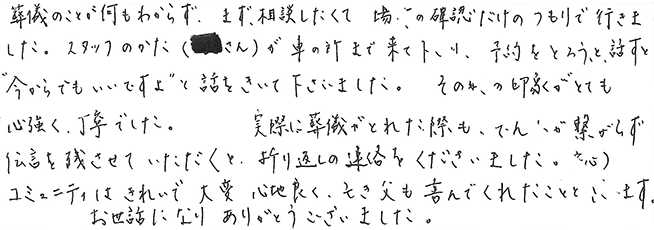 葬儀のことが何もわからず、まず相談したくて 場所の確認だけのつもりで行きま
した。スタッフのかた(さん)が車の所まで来て下さり、予約をとろうと話すと
"今からでもいいですよ"と話をきいて下さいました。その時の印象がとても
心強く、丁寧でした。 実際に葬儀がとれた際も、でんわが繋がらず
伝言を残させていただくと、折り返しの連絡をくださいました。
コミュニティはきれいで大変 心地良く、亡き父も喜んでくれたことと ます。
お世話になり ありがとうございました。